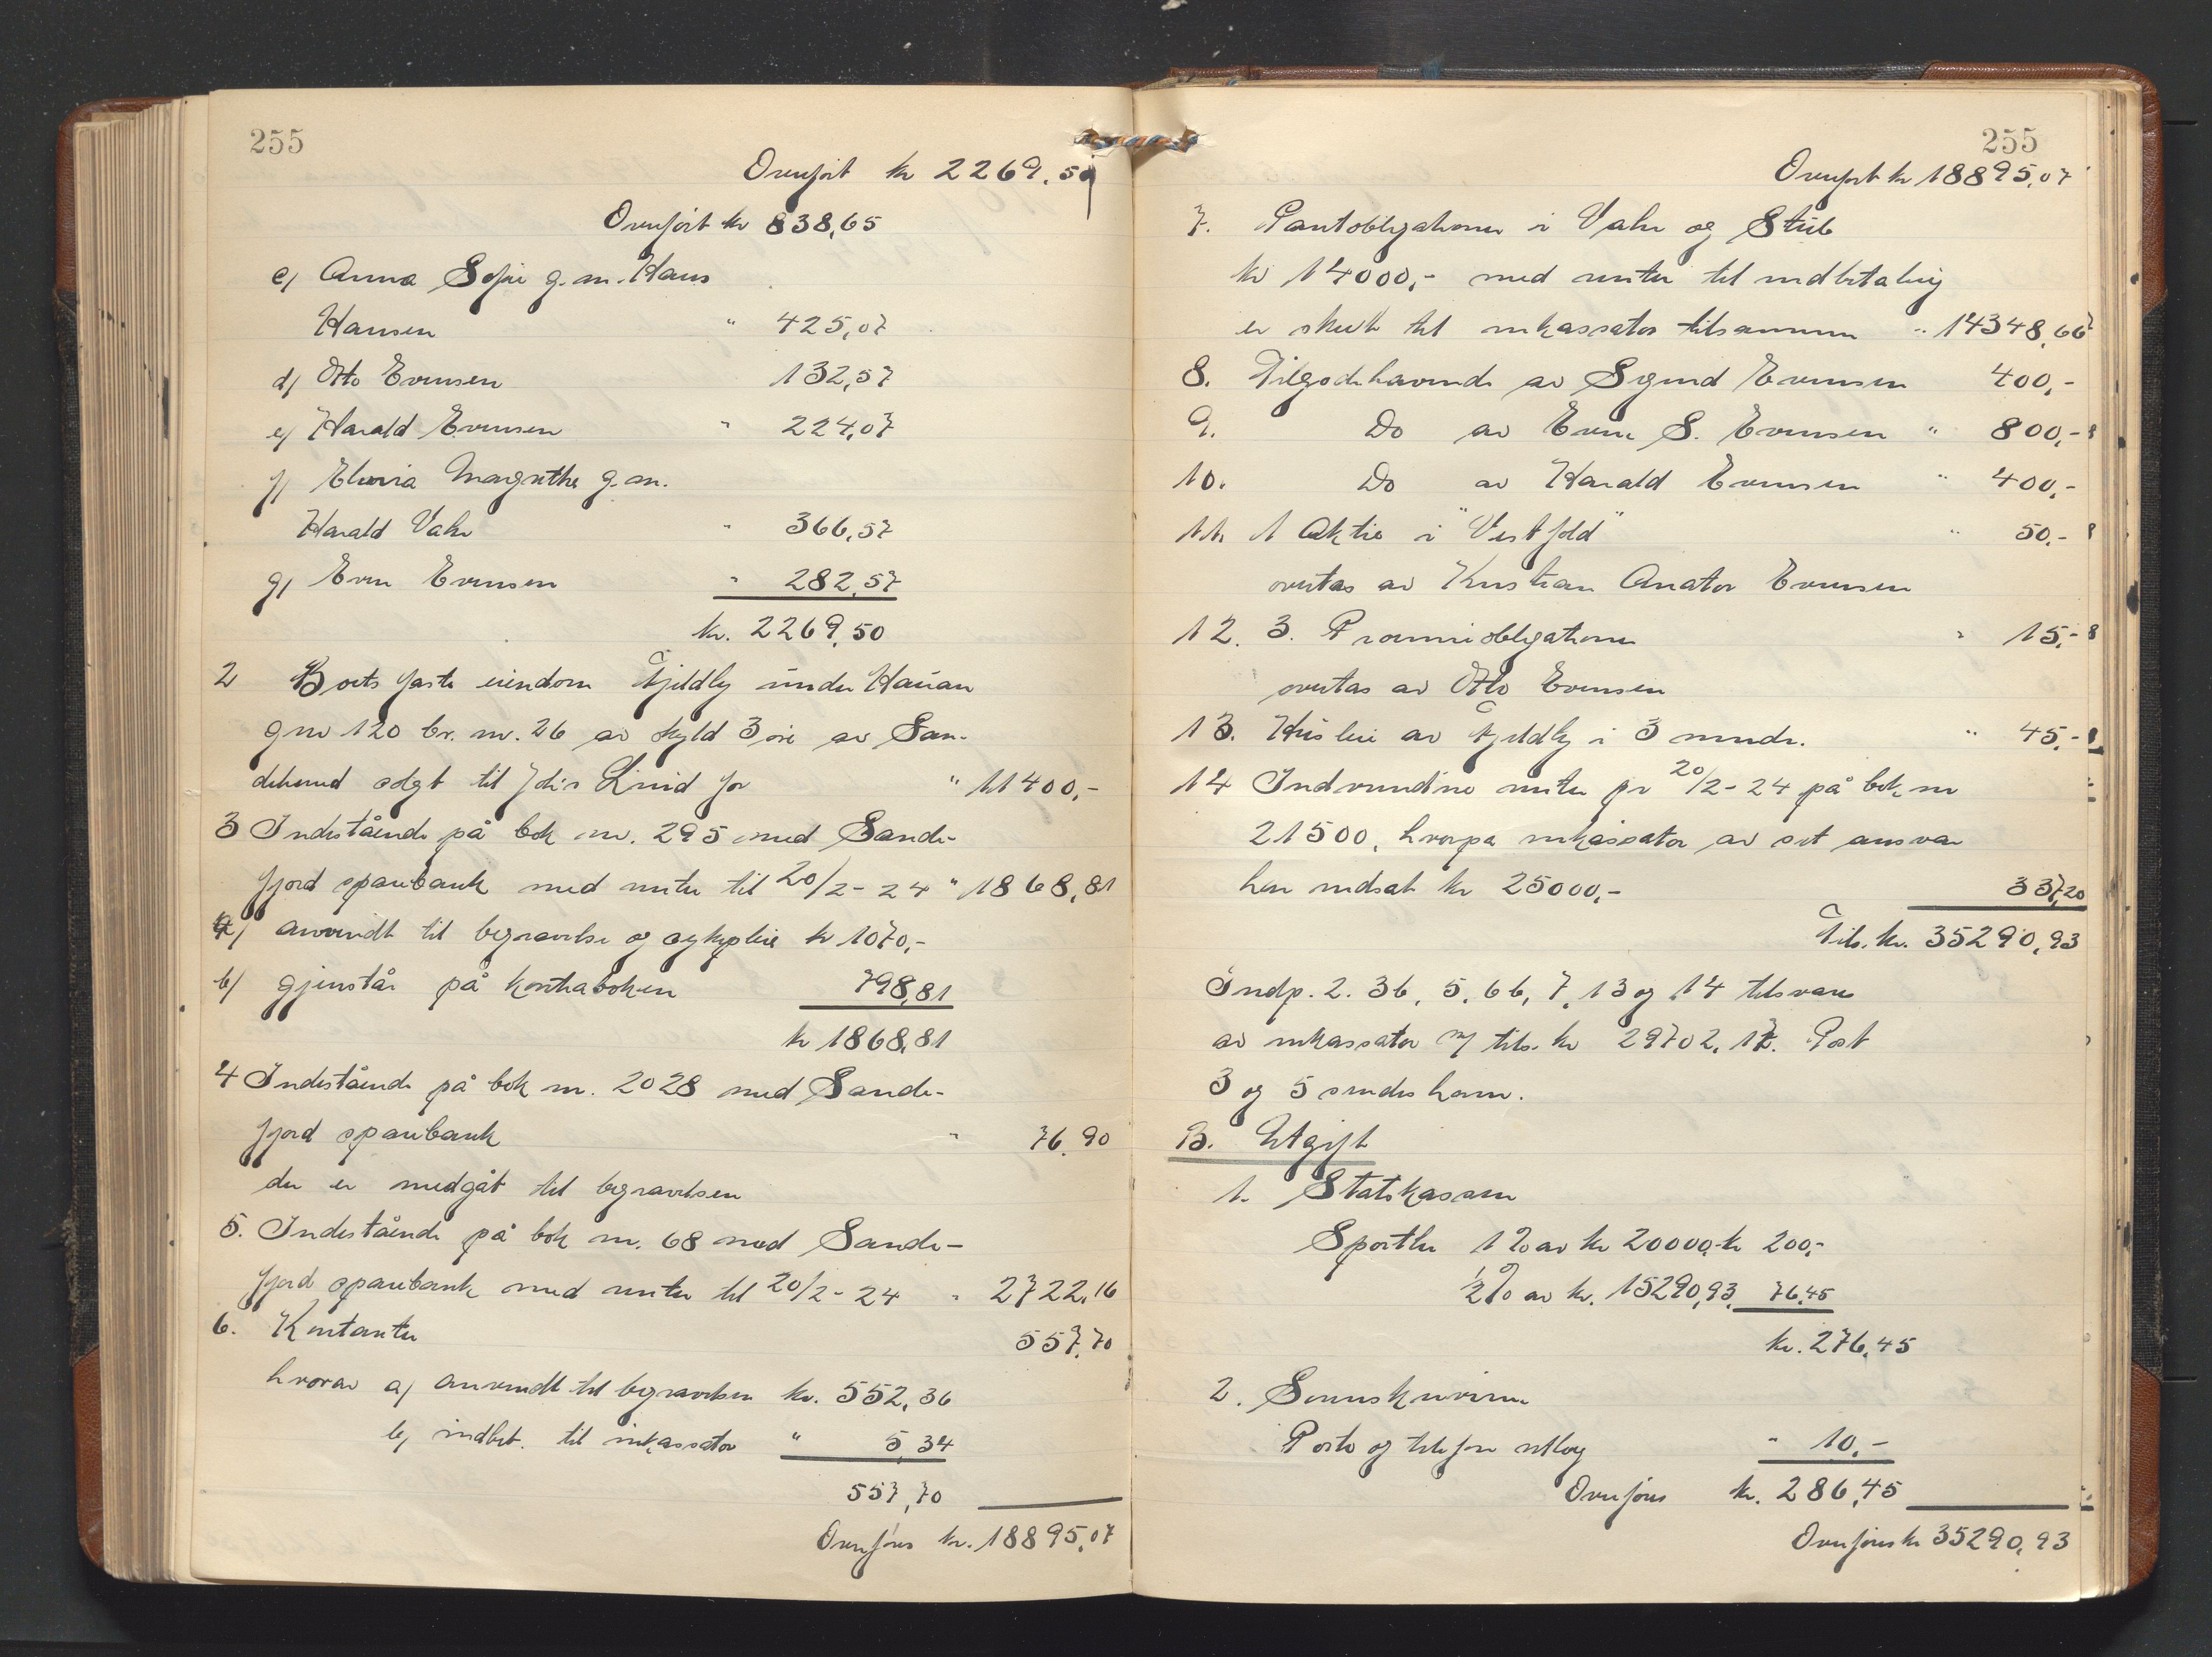 255
Overført kr 2269.50
Overført kr 838,65
c) Anna Sofie g. m. Hans
Hansen " 425,07
d) Otto Evensen 132,57
e) Harald Evensen " 224,07
f) Elvina Margrethe g. m.
Harald Vahr " 366,57
g) Even Evensen " 282,57
kr. 2269,50
2 Boets faste eiendom Fjeldly under Hauan
gnr 120 br. nr. 26 av skyld 3 øre av San-
deherred solgt til Lund for " 11400,-
3 Indestående på bok nr. 295 med Sande-
fjord sparebank med renter til 20/2-24 " 1868,81
a) anvendt til begravelse og sykepleie kr 1070,-
b) gjenstår på kontraboken 798,81
kr 1868,81
4 Indestående på bok nr. 2028 med Sande-
fjord sparebank " 76.90
der er medgåt til begravelsen
5. Indestående på bok nr. 68 med Sande-
fjord sparebank med renter til 20/2-24 " 2722,16
6. Kontanter 557,70
hvorav a) anvendt til begravelsen kr. 552,36
b) indbet. til inkassator " 5,34
557,70
Overføres kr. 18895,07
255
Overført kr 18895,07
7. Pantobligationer i Vahr og Stub
kr 14000,- med renter til indbetaling
er skeet til inkassator tilsammen " 14348,66
8. Tilgodehavende av Sigurd Evensen 400,-
9. Do av Even S. Evensen " 800,-
10. Do av Harald Evensen " 400,-
11. 1 aktie i "Vestfold" " 50,-
overtas av Kristian Anator Evensen
12. 3. Præmieobligationer " 15,-
overtas av Otto Evensen
13. Husleie av Fjeldly i 3 mndr. " 45,-
14 Indvundne renter pr 20/2-24 på bok nr
21500, hvorpå inkassator av sit ansvar
har indsat kr 25000,- 337,20
Tils. kr. 35290,93
Indp. 2. 3b, 5, 6b, 7, 13 og 14 tilsvares
av inkassator m/ tils. kr 29702,17. Post
3 og 5 sendes ham.
B. Utgift
1. Statskassen
Sportler 1 % av kr 20000,- kr 200,-
1/2 % av kr. 15290,93. 76,45
kr. 276,45
2. Sorenskriveren
Porto og telefon utlæg " 10,-
Overføres kr. 286,45
Overføres kr 35290,93